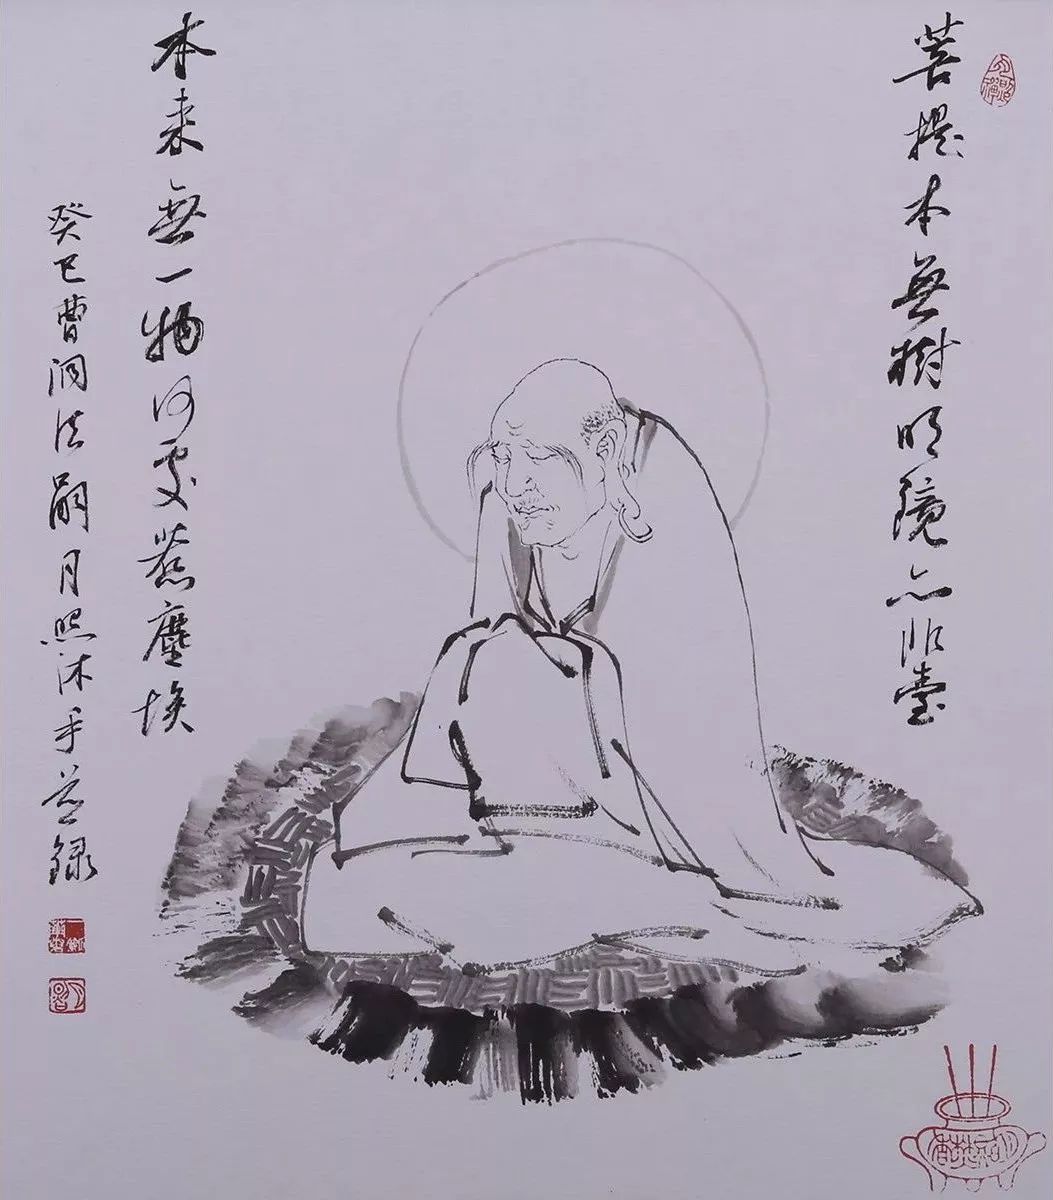 菩提本無樹明鏡亦非臺
本来無一物何處惹塵埃
癸巳曹洞法嗣月照沐手恭錄